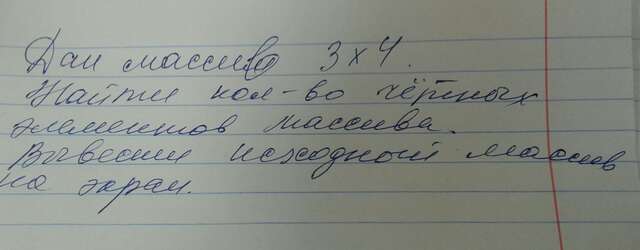 Дан массив 3х4.
Найти кол-во чётных
элементов массива.
Вывести исходный массив
на экран.